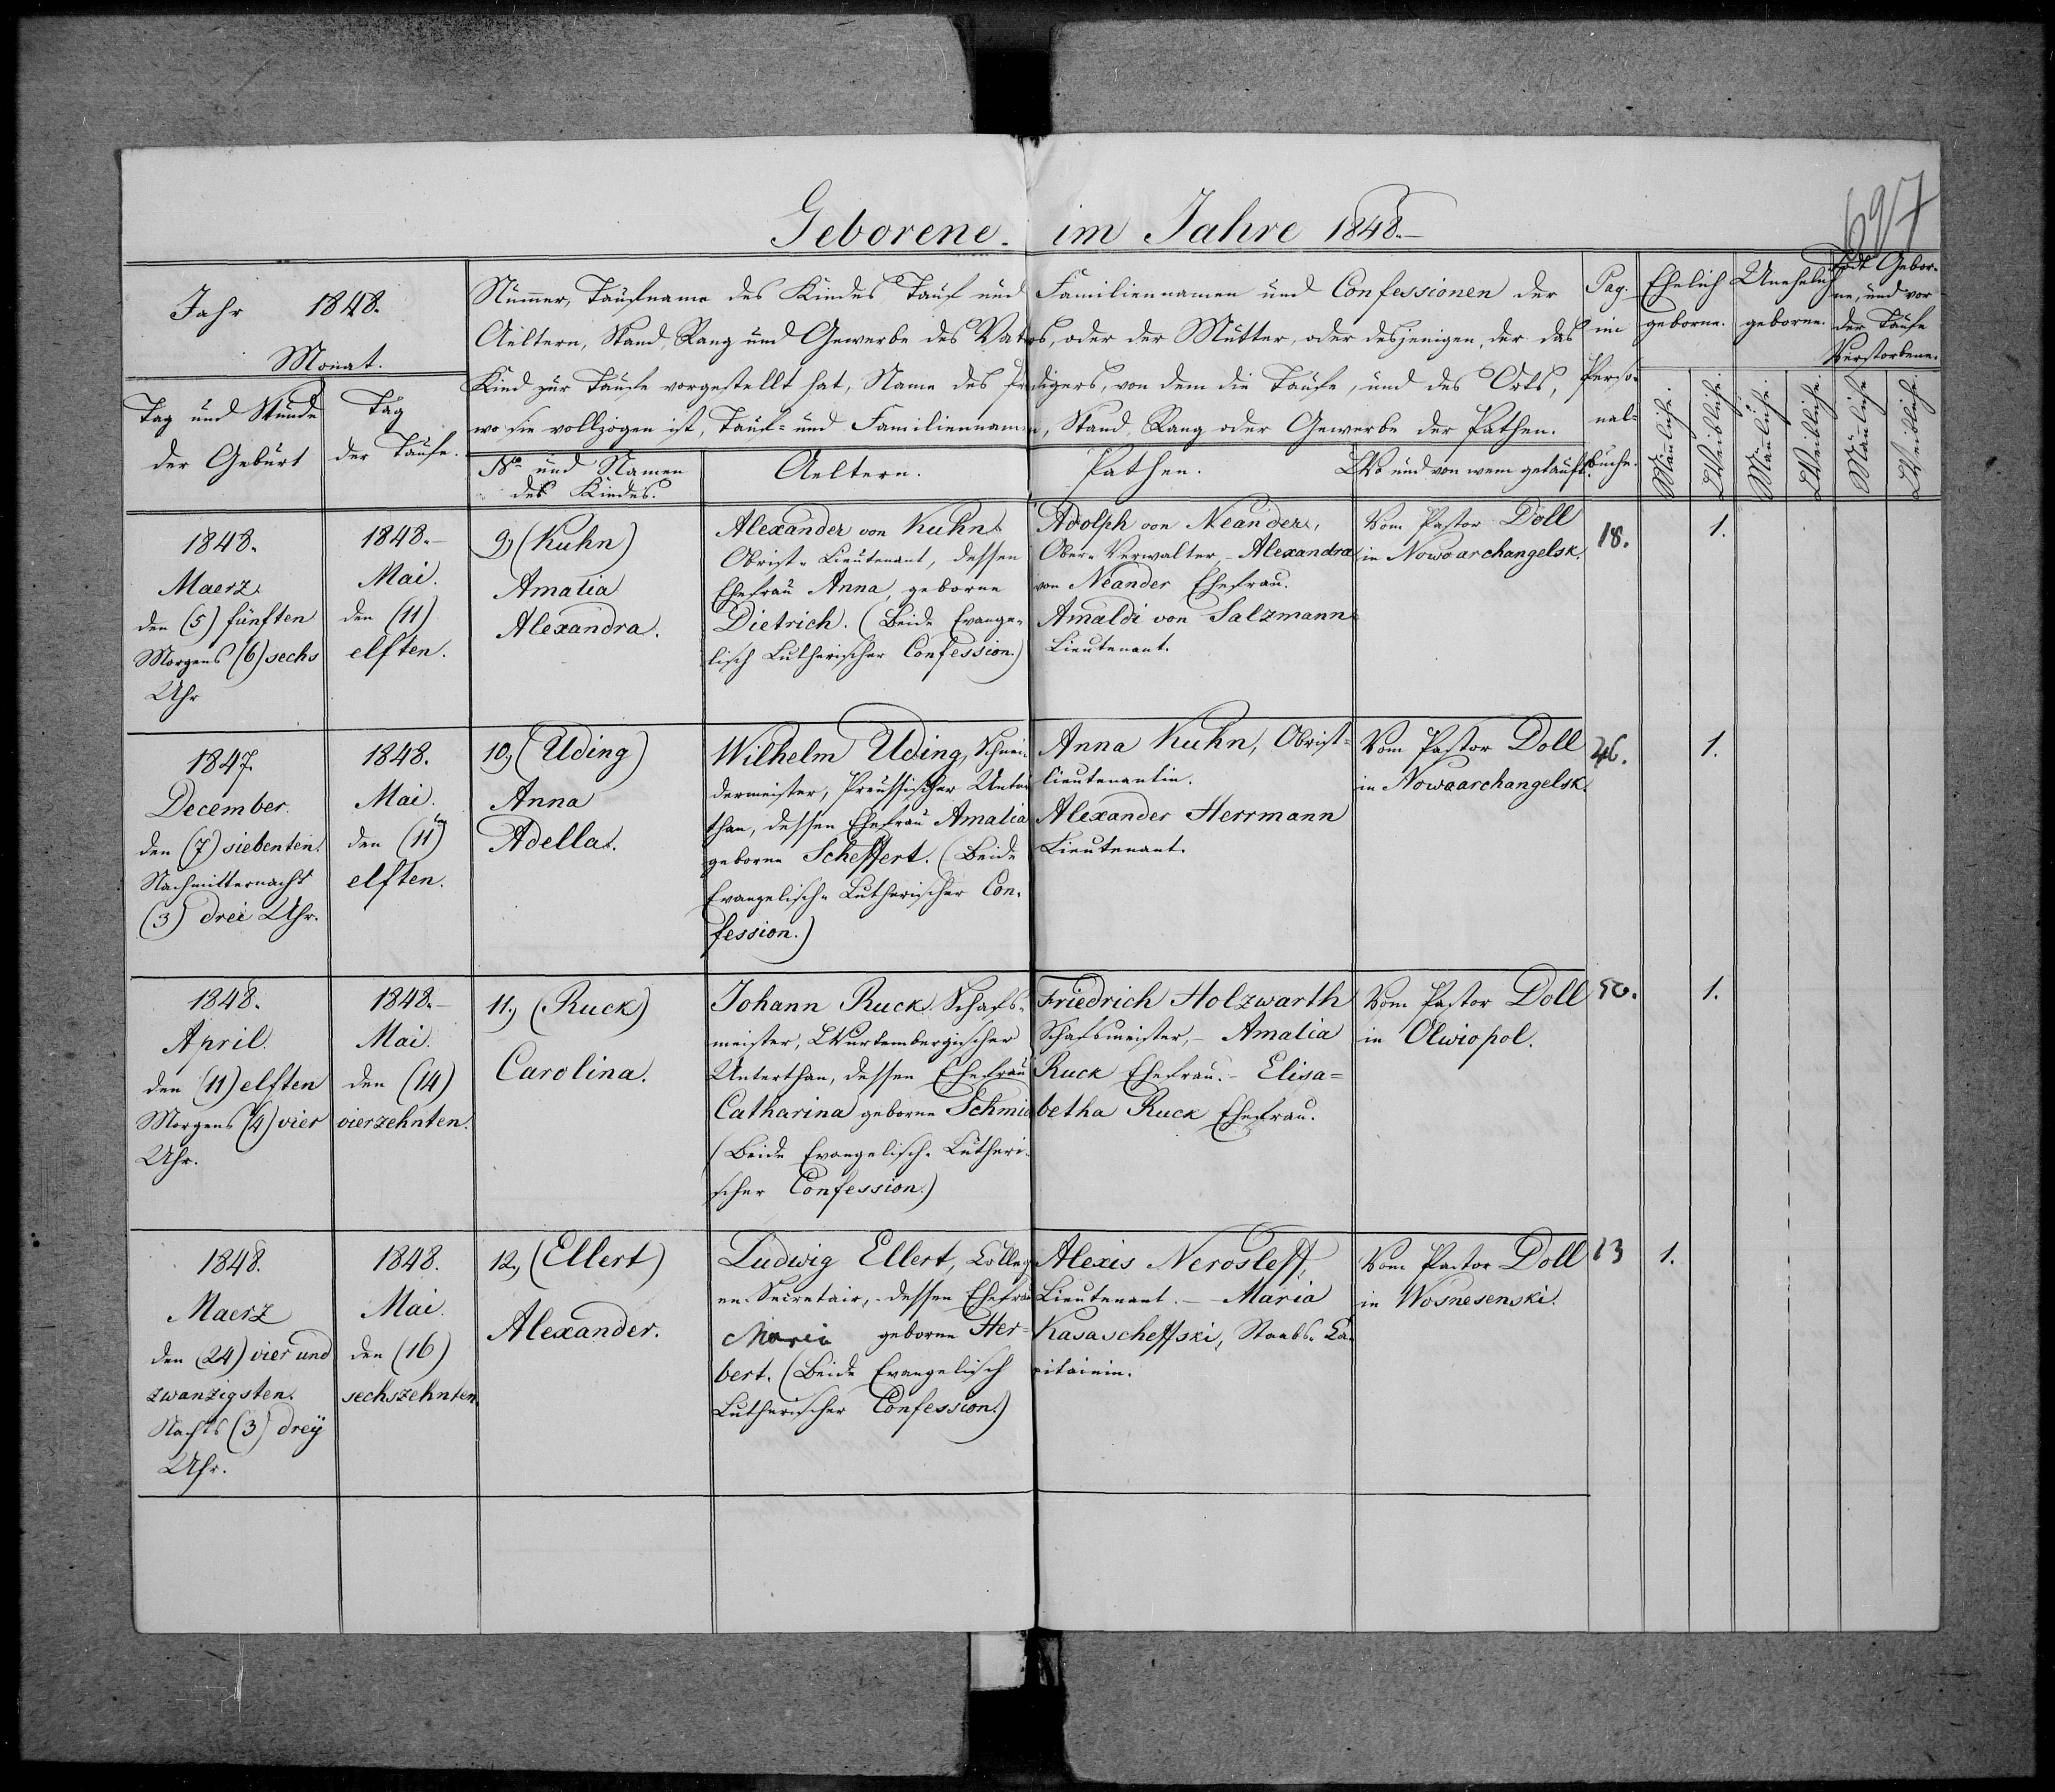 697
Geborene im Jahre 1848.
Jahr 1848.
Monat.
Tag und Stunde
der Geburt
Tag
der Taufe.
Numer, Taufname des Kindes Tauf und Familiennamen und Confessionen der
Aeltern, Stand, Rang und Gewerbe des Vaters, oder der Mutter, oder desjenigen, der das
Kind zur Taufe vorgestellt hat, Name des Predigers, von dem die Taufe, und des Orts,
wo sie vollzogen ist, Tauf- und Familiennamen, Stand, Rang oder Gewerbe der Pathen.
No und Namen
des Kindes.
Aeltern.
Pathen.
Wo und von wem getauft.
Pag.
im
Perso-
nal-
buche.
Ehelich
geborne.
Unehelich
geborne.
Todt Gebor-
ne, und vor
der Taufe
Verstorbene.
Mänliche.
Weibliche.
Mänliche.
Weibliche.
Mänliche
Weibliche.
1848.
Maerz.
den (5) fünften
Morgens (6) sechs
Uhr
1848.
Mai.
den (11)
elften.
9, (Kuhn)
Amalia
Alexandra.
Alexander von Kuhn
Obrist-Lieutenant, dessen
Ehefrau Anna, geborne
Dietrich. (Beide Evange-
lisch Lutherischer Confession.)
Adolph von Neander,
Ober-Verwalter, Alexandra
von Neander Ehefrau.
Amaldi von Salzmann
Lieutenant.
Vom Pastor Doll
in Nowoarchangelsk.
18.
1.
1847.
December.
den (7) siebenten.
Nachmitternacht
(3) drei Uhr.
1848.
Mai.
den (11)
elften.
10, (Uding)
Anna
Adella.
Wilhelm Uding, Schnei-
dermeister, Preussischer Unter
than, dessen Ehefrau Amalia
geborne Scheffert. (Beide
Evangelisch-Lutherischer Con-
fession.)
Anna Kuhn, Obrist-
lieutenantin.
Alexander Herrmann
Lieutenant.
Vom Pastor Doll
in Nowoarchangelsk.
46.
1.
1848.
April.
den (11) elften
Morgens (4) vier
Uhr.
1848.
Mai.
den (14)
vierzehnten.
11, (Ruck)
Carolina.
Johann Ruck. Schafs-
meister, Wurtembergischer
Unterthan, dessen Ehefrau
Catharina geborne Schmid
(Beide Evangelisch-Lutheri-
scher Confession.)
Friedrich Holzwarth
Schafsmeister, - Amalia
Ruck Ehefrau. - Elisa=
betha Ruck Ehefrau.
Vom Pastor Doll
in Olwiopol.
50.
1.
1848.
Maerz
den (24) vier und
zwanzigsten.
Nachts (3) dreÿ
Uhr.
1848.
Mai.
den (16)
sechszehnten
12, (Ellert)
Alexander.
Ludwig Ellert, Colleg
en-Secretair, dessen Ehefrau
Maria geborne Her=
bert. (Beide Evangelisch
Lutherischer Confession.)
Alexis Nerosleff,
Lieutenant. - Maria
Kasascheffski, Staabs-Ca-
pitainin.
Vom Pastor Doll
in Wosnesenski.
13
1.